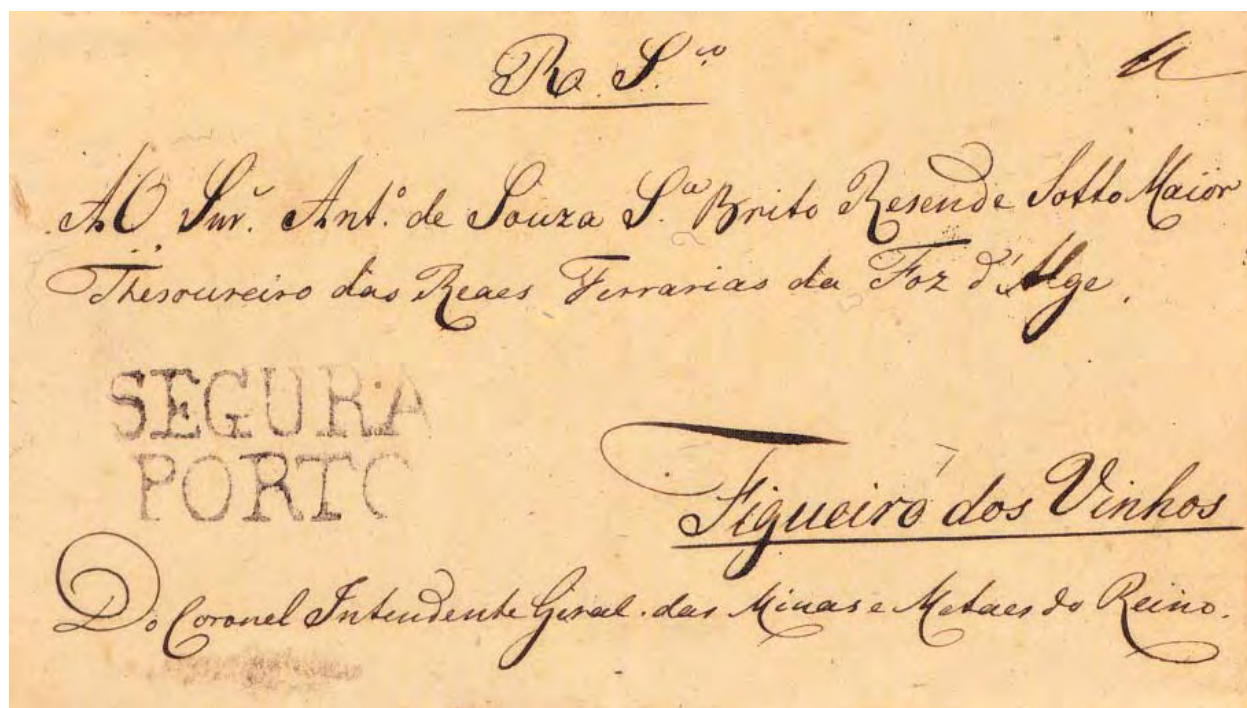 R. S.ço
AO Snr. Ant.º de Souza S.ª Brito Resende Sotto Maior
Thesoureiro das Reaes Ferrarias da Foz d'Alge.
SEGURA
PORTO
Figueiró dos Vinhos
Do Coronel Intendente Geral das Minas e Metaes do Reino.